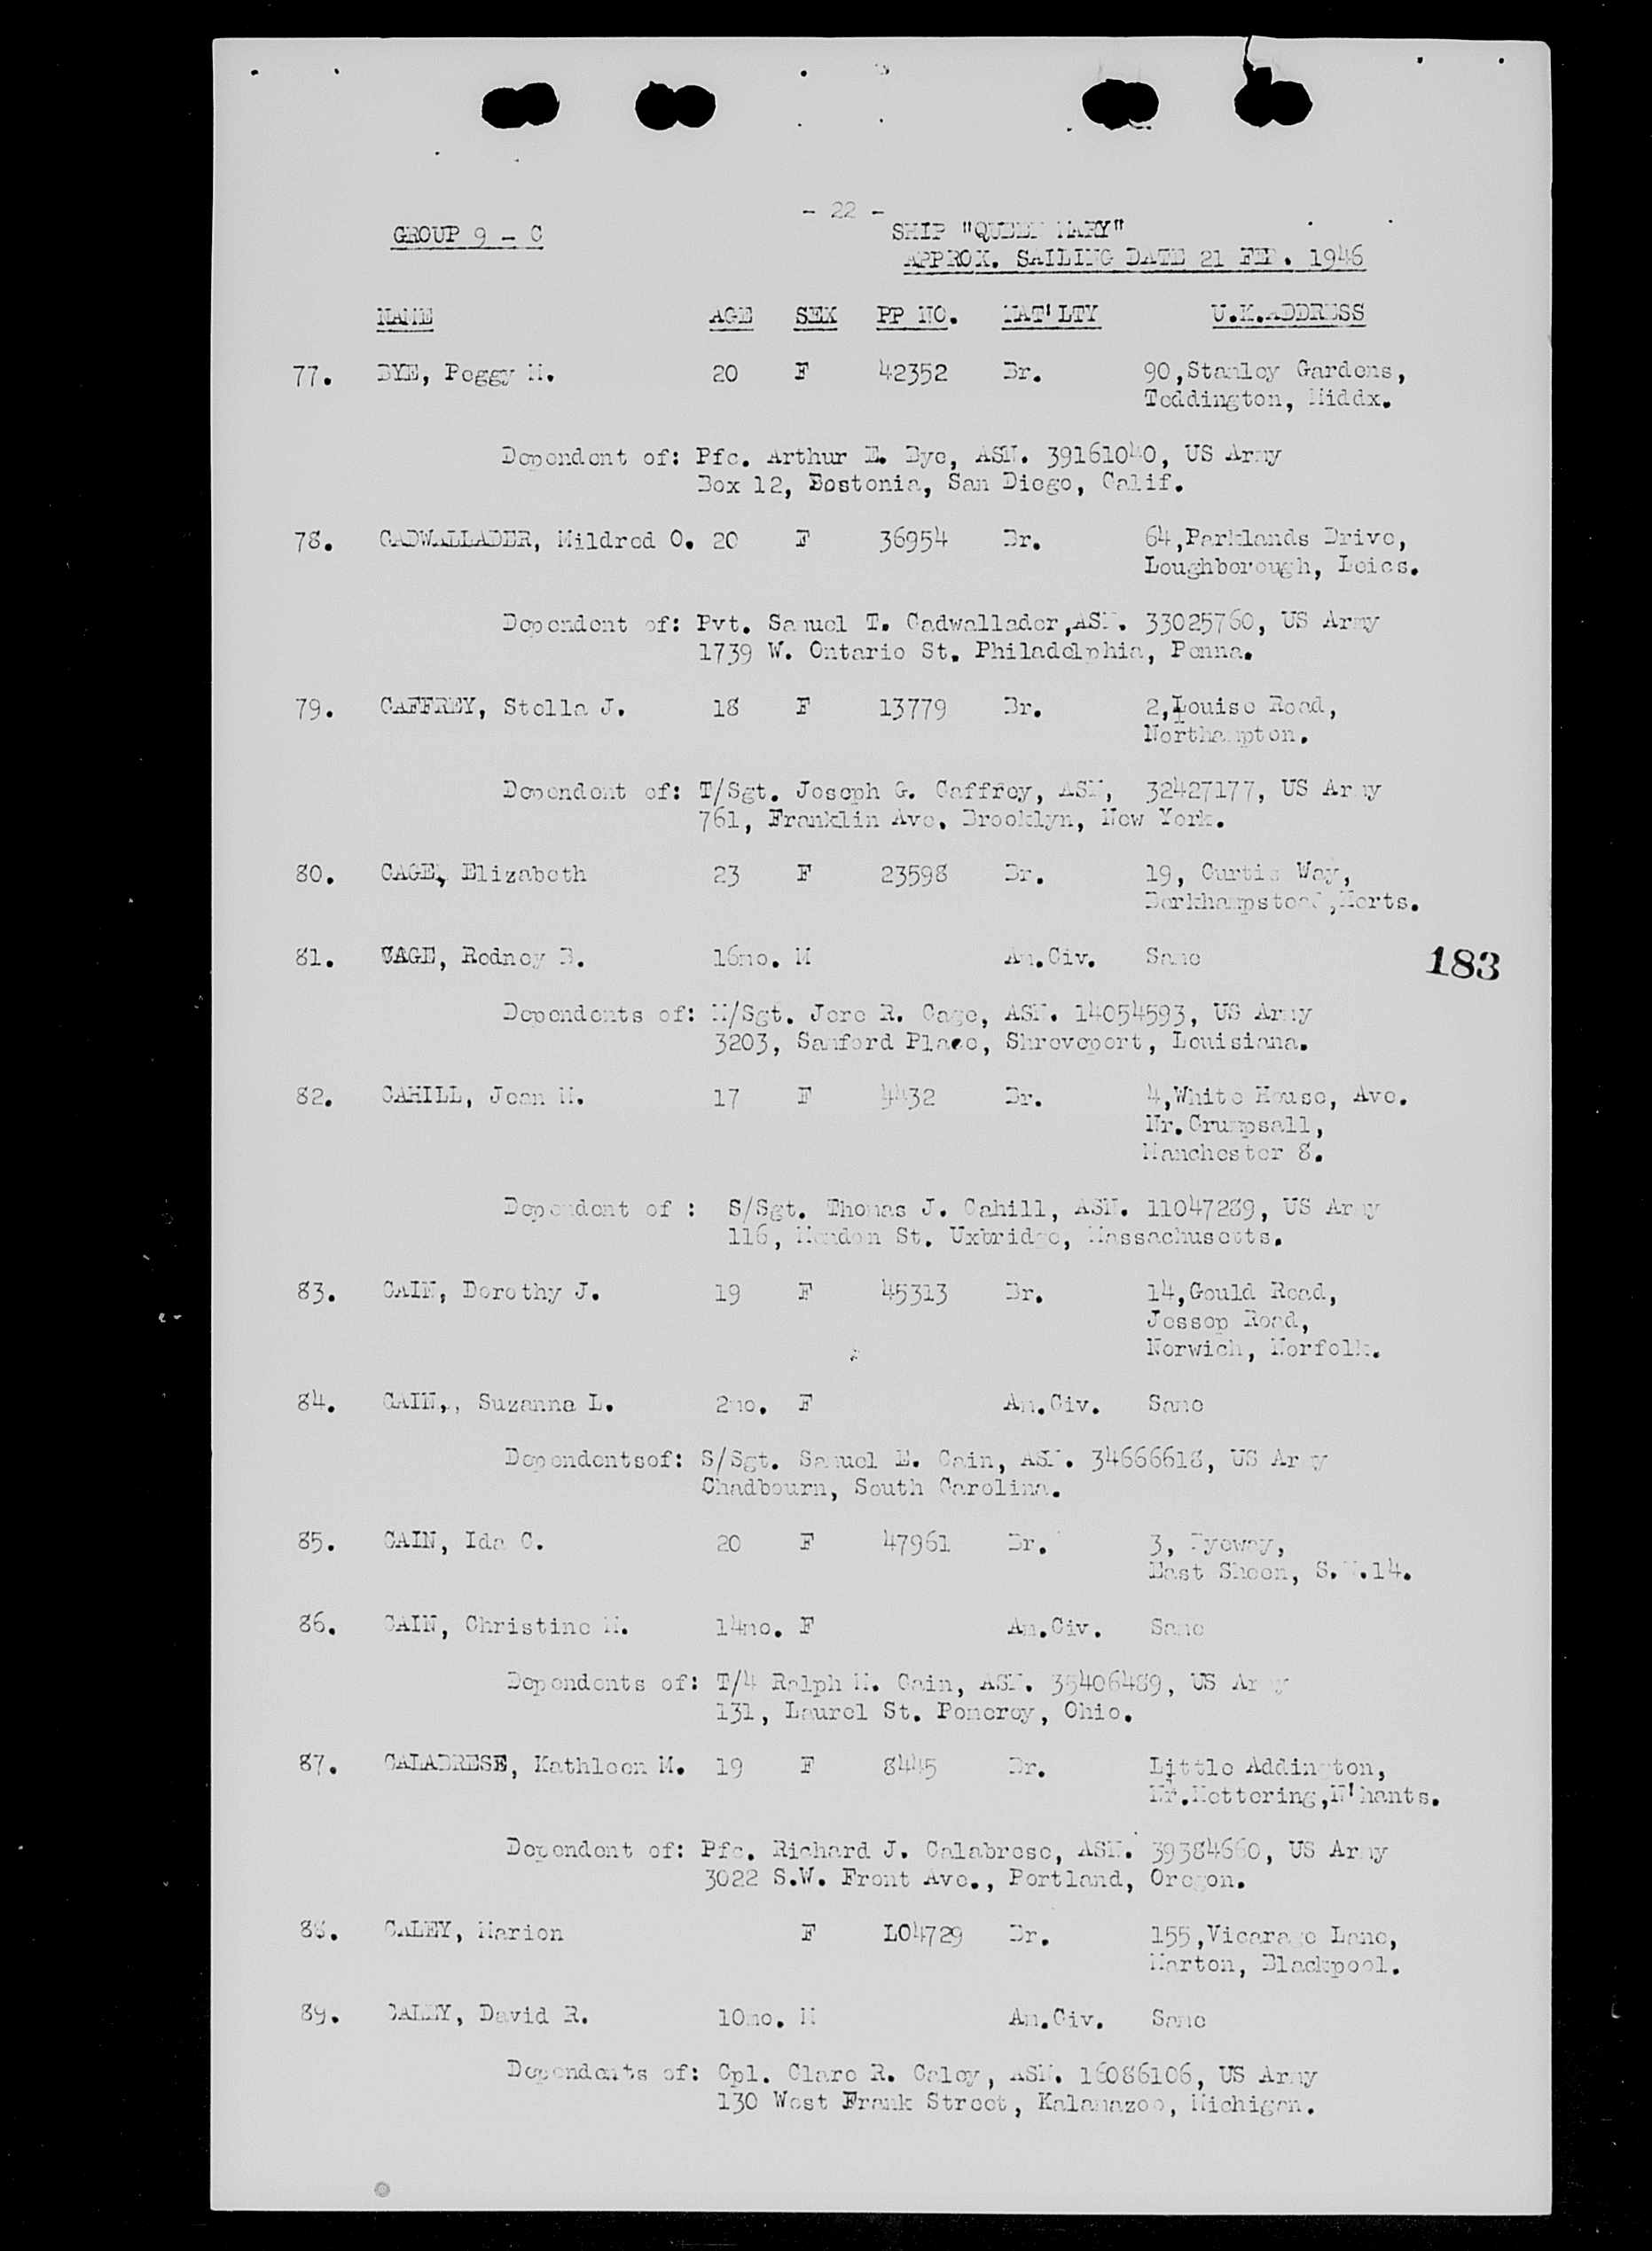 - 22 -
GROUP 9 - C
SHIP "QUEEN MARY"
APPROX. SAILING DATE 21 FEB. 1946
NAME AGE SEX PP NO. NAT'LTY U.K.ADDRESS
77. BYE, Peggy M. 20 F 42352 Br. 90,Stanley Gardens,
Teddington, Middx.
Dependent of: Pfc. Arthur E. Bye, ASN. 39161040, US Army
Box 12, Bostonia, San Diego, Calif.
78. CADWALLADER, Mildred O. 20 F 36954 Br. 64,Parklands Drive,
Loughborough, Leics.
Dependent of: Pvt. Samuel T. Cadwallader,ASN. 33025760, US Army
1739 W. Ontario St. Philadelphia, Penna.
79. CAFFREY, Stella J. 18 F 13779 Br. 2,Louise Road,
Northampton.
Dependent of: T/Sgt. Joseph G. Caffrey, ASN, 32427177, US Army
761, Franklin Ave. Brooklyn, New York.
80. CAGE, Elizabeth 23 F 23598 Br. 19, Curtis Way,
Berkhampstead,Herts.
81. CAGE, Rodney B. 16mo. M Am.Civ. Same
183
Dependents of: M/Sgt. Jere R. Cage, ASN. 14054593, US Army
3203, Sanford Place, Shreveport, Louisiana.
82. CAHILL, Jean M. 17 F 4432 Br. 4,White House, Ave.
Nr.Crumpsall,
Manchester 8.
Dependent of : S/Sgt. Thomas J. Cahill, ASN. 11047289, US Army
116, Mendon St. Uxbridge, Massachusetts.
83. CAIN, Dorothy J. 19 F 45313 Br. 14,Gould Road,
Jessop Road,
Norwich, Norfolk.
84. CAIN,, Suzanna L. 2mo. F Am.Civ. Same
Dependentsof: S/Sgt. Samuel E. Cain, ASN. 34666618, US Army
Chadbourn, South Carolina.
85. CAIN, Ida C. 20 F 47961 Br. 3,
East Sheen, S.W.14.
86. CAIN, Christine M. 14mo. F Am.Civ. Same
Dependents of: T/4 Ralph M. Cain, ASN. 35406489, US Army
131, Laurel St. Pomeroy, Ohio.
87. CALABRESE, Kathleen M. 19 F 8445 Br. Little Addington,
Nr.Kettering,N'hants.
Dependent of: Pfc. Richard J. Calabrese, ASN. 39384660, US Army
3022 S.W. Front Ave., Portland, Oregon.
88. CALEY, Marion F L04729 Br. 155,Vicarage Lane,
Marton, Blackpool.
89. CALEY, David R. 10mo. M Am.Civ. Same
Dependents of: Cpl. Clare R. Caley, ASN. 16086106, US Army
130 West Frank Street, Kalamazoo, Michigan.